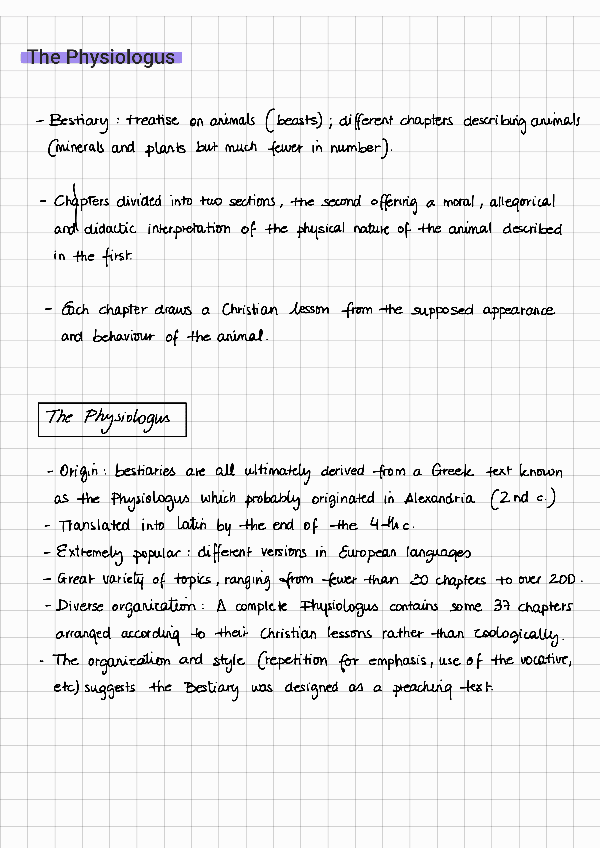 The Physiologus
- Bestiary : treatise on animals (beasts) ; different chapters describing animals
(minerals and plants but much fewer in number).
- Chapters divided into two sections, the second offering a moral, allegorical
and didactic interpretation of the physical nature of the animal described
in the first.
- Each chapter draws a Christian lesson from the supposed appearance
and behaviour of the animal.
The Physiologus
- Origin : bestiaries are all ultimately derived from a Greek text known
as the Physiologus which probably originated in Alexandria (2nd c.)
- Translated into Latin by the end of the 4th c.
- Extremely popular : different versions in European languages
- Great variety of topics, ranging from fewer than 20 chapters to over 200.
- Diverse organization : A complete Physiologus contains some 37 chapters
arranged according to their Christian lessons rather than zoologically.
- The organization and style (repetition for emphasis, use of the vocative,
etc) suggests the Bestiary was designed as a preaching text.